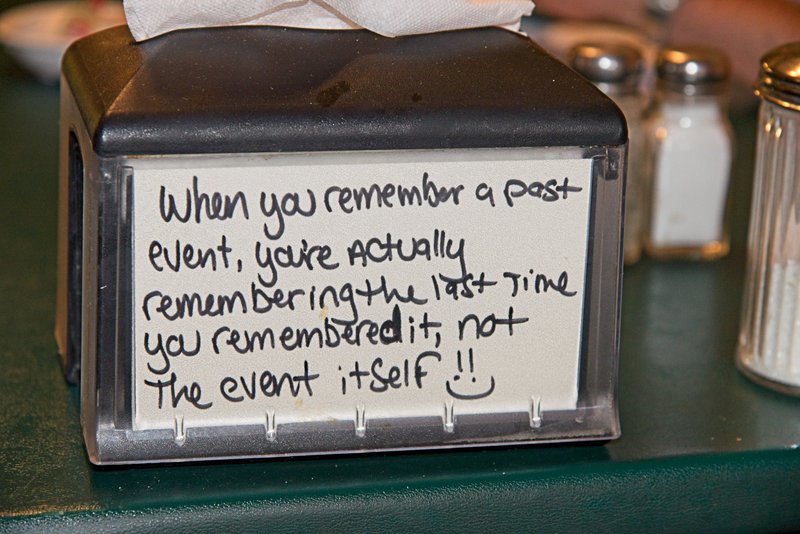 When you remember a past
event, you're Actually
remembering the last Time
you remembered it, not
The event itself !!